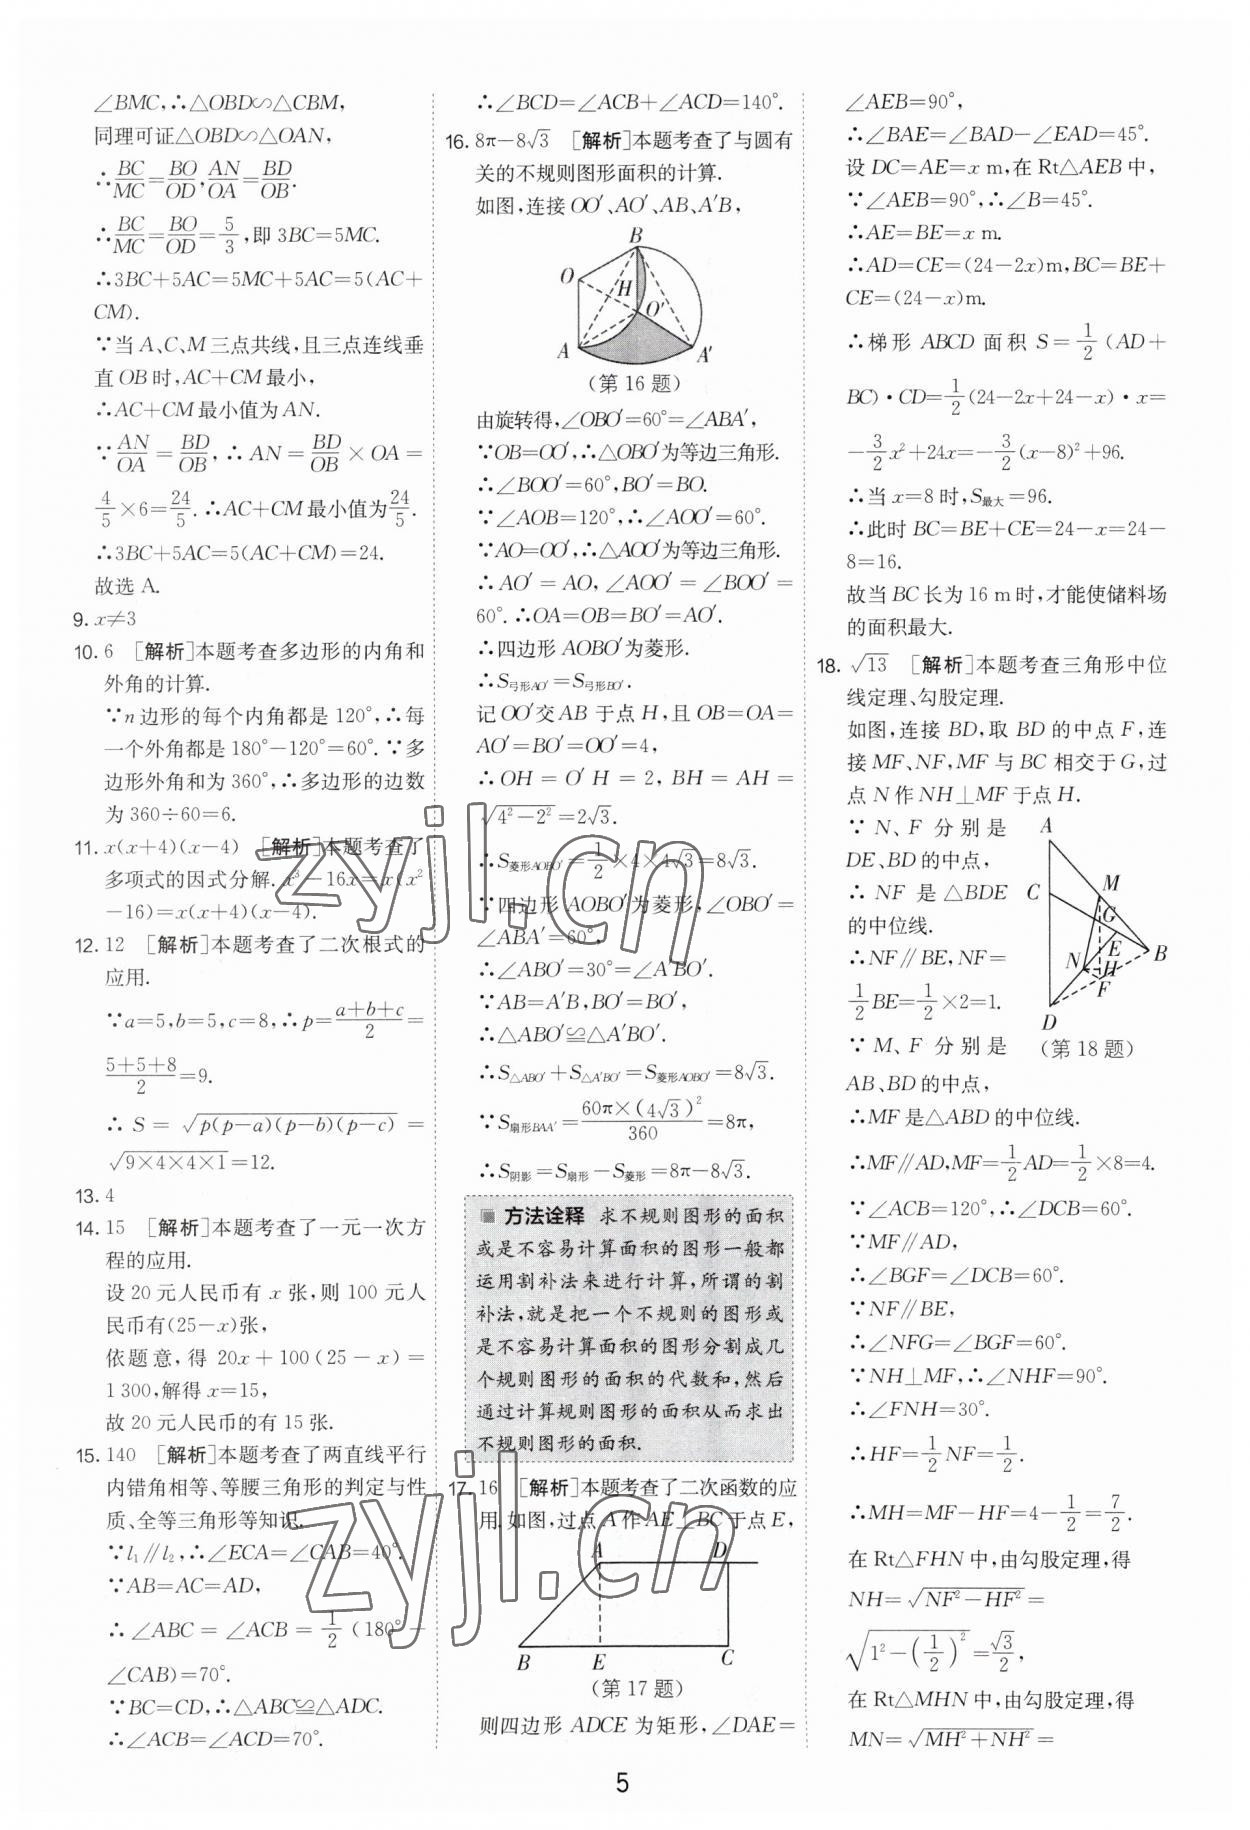 ∠BMC,∴△OBD∽△CBM,
同理可证△OBD∽△OAN,
∴BC/MC=BO/OD,AN/OA=BD/OB.
∴BC/MC=BO/OD=5/3,即3BC=5MC.
∴3BC+5AC=5MC+5AC=5(AC+
CM).
∵当A、C、M三点共线,且三点连线垂
直OB时,AC+CM最小,
∴AC+CM最小值为AN.
∵AN/OA=BD/OB,∴AN=BD/OB×OA=
4/5×6=24/5.∴AC+CM最小值为24/5.
∴3BC+5AC=5(AC+CM)=24.
故选A.
9. x≠3
10. 6 [解析]本题考查多边形的内角和
外角的计算.
∵n边形的每个内角都是120°,∴每
一个外角都是180°-120°=60°.∵多
边形外角和为360°,∴多边形的边数
为360÷60=6.
11. x(x+4)(x-4) [解析]本题考查了
多项式的因式分解.x³-16x=x(x²
-16)=x(x+4)(x-4).
12. 12 [解析]本题考查了二次根式的
应用.
∵a=5,b=5,c=8,∴p=(a+b+c)/2=
(5+5+8)/2=9.
∴S=√(p(p-a)(p-b)(p-c))=
√(9×4×4×1)=12.
13. 4
14. 15 [解析]本题考查了一元一次方
程的应用.
设20元人民币有x张,则100元人
民币有(25-x)张,
依题意,得20x+100(25-x)=
1 300,解得x=15,
故20元人民币的有15张.
15. 140 [解析]本题考查了两直线平行
内错角相等、等腰三角形的判定与性
质、全等三角形等知识.
∵l₁∥l₂,∴∠ECA=∠CAB=40°.
∵AB=AC=AD,
∴∠ABC=∠ACB=1/2(180°-
∠CAB)=70°.
∵BC=CD,∴△ABC≌△ADC.
∴∠ACB=∠ACD=70°.
∴∠BCD=∠ACB+∠ACD=140°.
16. 8π-8√3 [解析]本题考查了与圆有
关的不规则图形面积的计算.
如图,连接OO′、AO′、AB、A′B,
B
O
H
O′
A
A′
(第16题)
由旋转得,∠OBO′=60°=∠ABA′,
∵OB=OO′,∴△OBO′为等边三角形.
∴∠BOO′=60°,BO′=BO.
∵∠AOB=120°,∴∠AOO′=60°.
∵AO=OO′,∴△AOO′为等边三角形.
∴AO′=AO,∠AOO′=∠BOO′=
60°.∴OA=OB=BO′=AO′.
∴四边形AOBO′为菱形.
∴S弓形AO′=S弓形BO′.
记OO′交AB于点H,且OB=OA=
AO′=BO′=OO′=4,
∴OH=O′H=2,BH=AH=
√(4²-2²)=2√3.
∴S菱形AOBO′=1/2×4×4√3=8√3.
∵四边形AOBO′为菱形,∠OBO′=
∠ABA′=60°,
∴∠ABO′=30°=∠A′BO′.
∵AB=A′B,BO′=BO′,
∴△ABO′≌△A′BO′.
∴S△ABO′+S△A′BO′=S菱形AOBO′=8√3.
∵S扇形BAA′=60π×(4√3)²/360=8π,
∴S阴影=S扇形-S菱形=8π-8√3.
方法诠释 求不规则图形的面积
或是不容易计算面积的图形一般都
运用割补法来进行计算,所谓的割
补法,就是把一个不规则的图形或
是不容易计算面积的图形分割成几
个规则图形的面积的代数和,然后
通过计算规则图形的面积从而求出
不规则图形的面积.
17. 16 [解析]本题考查了二次函数的应
用.如图,过点A作AE⊥BC于点E,
A D
B E C
(第17题)
则四边形ADCE为矩形,∠DAE=
∠AEB=90°,
∴∠BAE=∠BAD-∠EAD=45°.
设DC=AE=x m,在Rt△AEB中,
∵∠AEB=90°,∴∠B=45°.
∴AE=BE=x m.
∴AD=CE=(24-2x)m,BC=BE+
CE=(24-x)m.
∴梯形ABCD面积S=1/2(AD+
BC)·CD=1/2(24-2x+24-x)·x=
-3/2x²+24x=-3/2(x-8)²+96.
∴当x=8时,S最大=96.
∴此时BC=BE+CE=24-x=24-
8=16.
故当BC长为16 m时,才能使储料场
的面积最大.
18. √13 [解析]本题考查三角形中位
线定理、勾股定理.
如图,连接BD,取BD的中点F,连
接MF、NF,MF与BC相交于G,过
点N作NH⊥MF于点H.
∵N、F分别是
DE、BD的中点,
∴NF是△BDE
的中位线.
∴NF∥BE,NF=
1/2BE=1/2×2=1.
∵M、F分别是
A
C
M
G
E
B
N
H
F
D
(第18题)
AB、BD的中点,
∴MF是△ABD的中位线.
∴MF∥AD,MF=1/2AD=1/2×8=4.
∵∠ACB=120°,∴∠DCB=60°.
∵MF∥AD,
∴∠BGF=∠DCB=60°.
∵NF∥BE,
∴∠NFG=∠BGF=60°.
∵NH⊥MF,∴∠NHF=90°.
∴∠FNH=30°.
∴HF=1/2NF=1/2.
∴MH=MF-HF=4-1/2=7/2.
在Rt△FHN中,由勾股定理,得
NH=√(NF²-HF²)=
√(1²-(1/2)²)=√3/2,
在Rt△MHN中,由勾股定理,得
MN=√(MH²+NH²)=
5
zyjl.cn
zyjl.cn